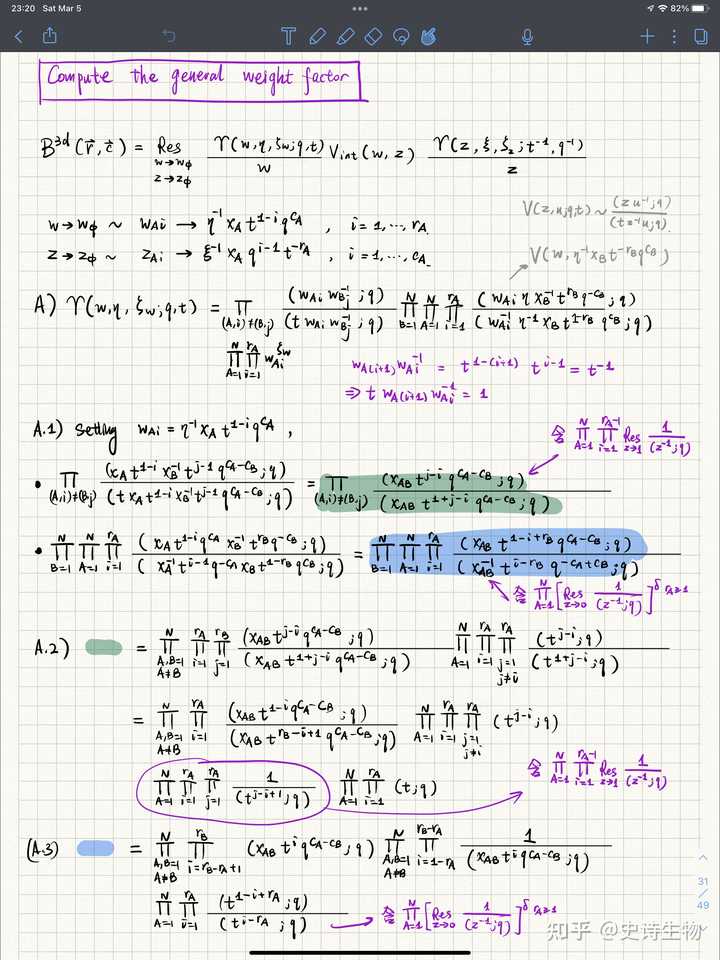 23:20 Sat Mar 5
82%
Compute the general weight factor
B^{3d}(\vec{r}, \vec{c}) = Res_{w→w_φ, z→z_φ} Υ(w,η,ξ_w;q,t)/w V_int(w,z) Υ(z,ξ,ξ_z;t^{-1},q^{-1})/z
w→w_φ ~ w_{Ai} → η^{-1} x_A t^{1-i} q^{c_A} , i=1,…,r_A
V(z,u;q,t) ~ (z u^{-1};q)/(t z^{-1}u;q)
z→z_φ ~ z_{Ai} → ξ^{-1} x_A q^{i-1} t^{-r_A} , i=1,…,c_A
V(w, η^{-1} x_B t^{-r_B} q^{c_B})
A) Υ(w,η,ξ_w;q,t) = ∏_{(A,i)≠(B,j)} (w_{Ai} w_{Bj}^{-1};q)/(t w_{Ai} w_{Bj}^{-1};q) ∏_{B=1}^N ∏_{A=1}^N ∏_{i=1}^{r_A} (w_{Ai} η x_B^{-1} t^{r_B} q^{-c_B};q)/(w_{Ai}^{-1} η^{-1} x_B t^{1-r_B} q^{c_B};q)
∏_{A=1}^N ∏_{i=1}^{r_A} w_{Ai}^{ξ_w}
w_{A(i+1)} w_{Ai}^{-1} = t^{1-(i+1)} t^{i-1} = t^{-1}
⇒ t w_{A(i+1)} w_{Ai}^{-1} = 1
A.1) Setting w_{Ai} = η^{-1} x_A t^{1-i} q^{c_A} ,
含 ∏_{A=1}^N ∏_{i=1}^{r_A-1} Res_{z→1} 1/(z^{-1};q)
• ∏_{(A,i)≠(B,j)} (x_A t^{1-i} x_B^{-1} t^{j-1} q^{c_A-c_B};q)/(t x_A t^{1-i} x_B^{-1} t^{j-1} q^{c_A-c_B};q) = ∏_{(A,i)≠(B,j)} (x_{AB} t^{j-i} q^{c_A-c_B};q)/(x_{AB} t^{1+j-i} q^{c_A-c_B};q)
• ∏_{B=1}^N ∏_{A=1}^N ∏_{i=1}^{r_A} (x_A t^{1-i} q^{c_A} x_B^{-1} t^{r_B} q^{-c_B};q)/(x_A^{-1} t^{i-1} q^{-c_A} x_B t^{1-r_B} q^{c_B};q) = ∏_{B=1}^N ∏_{A=1}^N ∏_{i=1}^{r_A} (x_{AB} t^{1-i+r_B} q^{c_A-c_B};q)/(x_{AB}^{-1} t^{i-r_B} q^{-c_A+c_B};q)
含 ∏_{A=1}^N [Res_{z→0} 1/(z^{-1};q)]^{δ_{r_A≥1}}
A.2) = ∏_{A,B=1, A≠B}^N ∏_{i=1}^{r_A} ∏_{j=1}^{r_B} (x_{AB} t^{j-i} q^{c_A-c_B};q)/(x_{AB} t^{1+j-i} q^{c_A-c_B};q) ∏_{A=1}^N ∏_{i=1}^{r_A} ∏_{j=1, j≠i}^{r_A} (t^{j-i};q)/(t^{1+j-i};q)
= ∏_{A,B=1, A≠B}^N ∏_{i=1}^{r_A} (x_{AB} t^{1-i} q^{c_A-c_B};q)/(x_{AB} t^{r_B-i+1} q^{c_A-c_B};q) ∏_{A=1}^N ∏_{i=1}^{r_A} ∏_{j=1, j≠i}^{r_A} (t^{j-i};q)
∏_{A=1}^N ∏_{i=1}^{r_A} ∏_{j=1}^{r_A} 1/(t^{j-i+1};q) ∏_{A=1}^N ∏_{i=1}^{r_A} (t;q)
含 ∏_{A=1}^N ∏_{i=1}^{r_A-1} Res_{z→1} 1/(z^{-1};q)
(A.3) = ∏_{A,B=1, A≠B}^N ∏_{i=r_B-r_A+1}^{r_B} (x_{AB} t^i q^{c_A-c_B};q) ∏_{A,B=1, A≠B}^N ∏_{i=1-r_A}^{r_B-r_A} 1/(x_{AB} t^i q^{c_A-c_B};q)
∏_{A=1}^N ∏_{i=1}^{r_A} (t^{1-i+r_A};q)/(t^{i-r_A};q)
含 ∏_{A=1}^N [Res_{z→0} 1/(z^{-1};q)]^{δ_{r_A≥1}}
31
/
49
知乎 @史诗生物